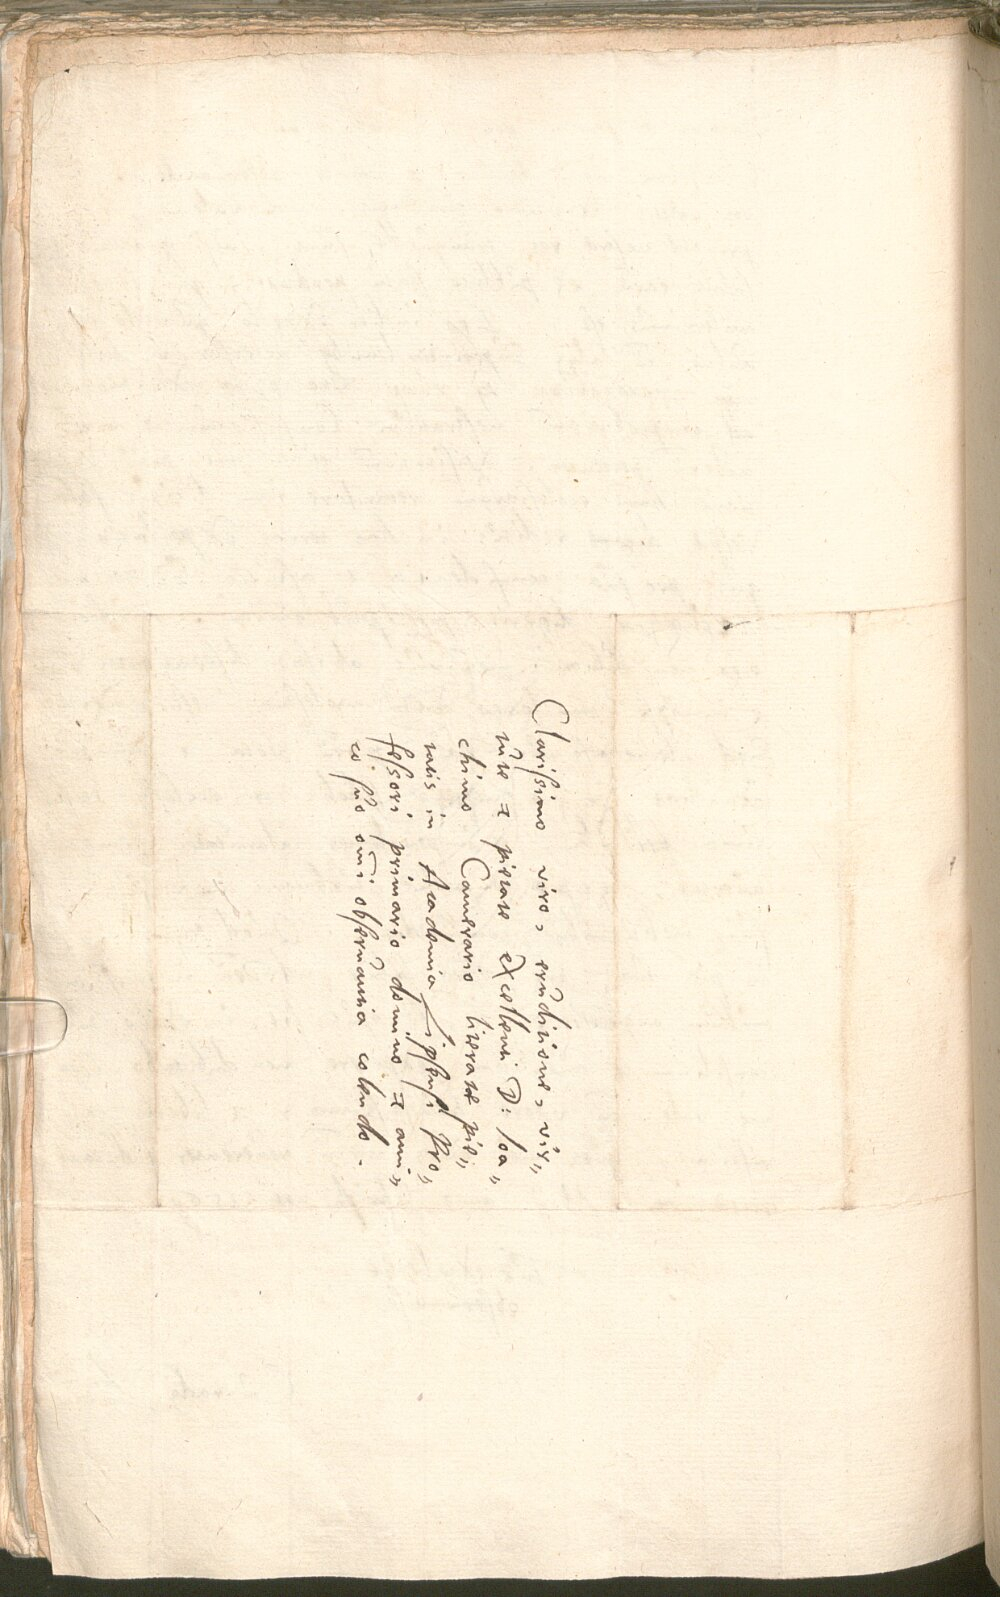 Clarissimo viro, eruditione, vir„
tute et pietate excellenti D: Ioa„
chimo Camerario literatae pie„
tatis in Academia Lipsensi Pro„
fessori primario domino et ami„
co suo om̄i observantia colendo.